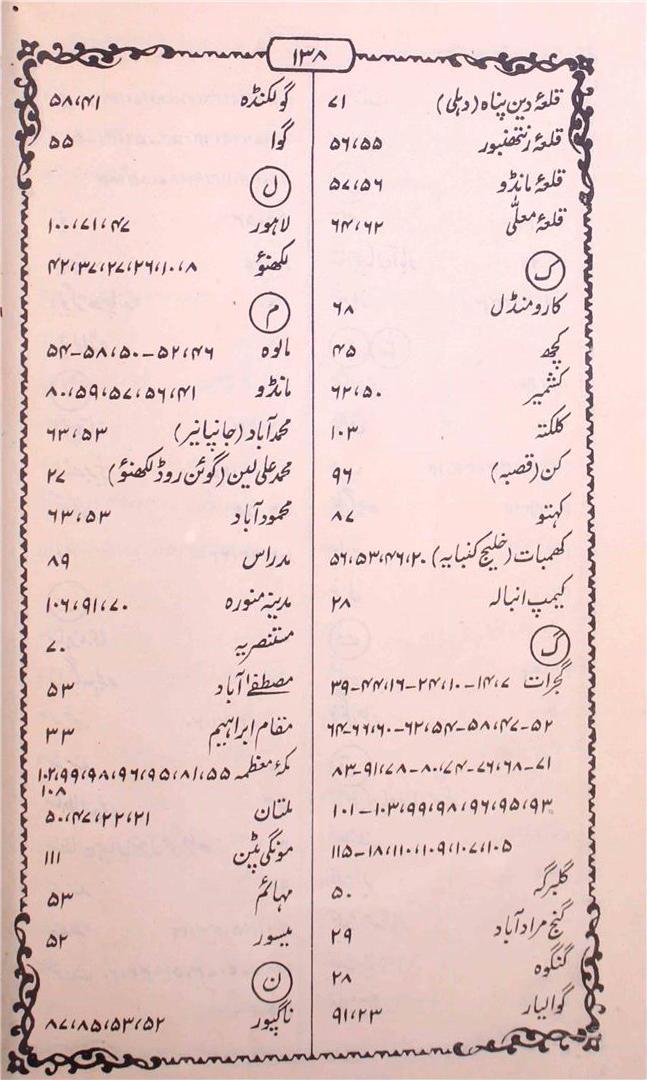 ۱۳۸
قلعۂ دین پناہ (دہلی) ۷۱
قلعۂ رنتھنبور ۵۶،۵۵
قلعۂ مانڈو ۵۷،۵۶
قلعۂ معلّٰی ۶۴،۶۲
ک
کارومنڈل ۶۸
کچھ ۴۵
کشمیر ۶۲،۵۰
کلکتہ ۱۰۳
کن (قصبہ) ۹۶
کہتو ۸۷
کھمبات (خلیج کنبایہ) ۵۶،۵۳،۴۶،۲۰
کیمپ انبالہ ۲۸
گ
گجرات ۳۹-۴۴،۱۶-۲۴،۱۰-۱۴،۷
۶۴-۶۶،۶۰-۶۲،۵۴-۵۸،۴۷-۵۲
۸۳-۹۱،۷۸-۸۰،۷۴-۷۶،۶۸-۷۱
۱۰۱-۱۰۳،۹۹،۹۸،۹۶،۹۵،۹۳
۱۱۵-۱۸،۱۱۰،۱۰۹،۱۰۷،۱۰۵
گلبرگہ ۵۰
گنج مرادآباد ۲۹
گنگوہ ۲۸
گوالیار ۹۱،۲۳
گولکنڈہ ۵۸،۴۱
گوا ۵۵
ل
لاہور ۱۰۰،۷۱،۴۷
لکھنؤ ۴۲،۳۷،۲۷،۲۶،۱۰،۸
م
مالوہ ۵۴-۵۸،۵۰-۵۲،۴۶
مانڈو ۸۰،۵۹،۵۷،۵۶،۴۱
محمدآباد (جانپانیر) ۶۳،۵۳
محمد علی لین (گوئن روڈ لکھنؤ) ۲۷
محمودآباد ۶۳،۵۳
مدراس ۸۹
مدینہ منورہ ۱۰۶،۹۱،۷۰
مستنصریہ ۷۰
مصطفےٰ آباد ۵۳
مقام ابراہیم ۳۳
مکۂ معظمہ ۱۰۲،۹۹،۹۸،۹۶،۹۵،۸۱،۵۵
۱۰۸
ملتان ۵۰،۴۷،۲۲،۲۱
مونگی پٹن ۱۱۱
مہائم ۵۳
میسور ۵۲
ن
ناگپور ۸۷،۸۵،۵۳،۵۲